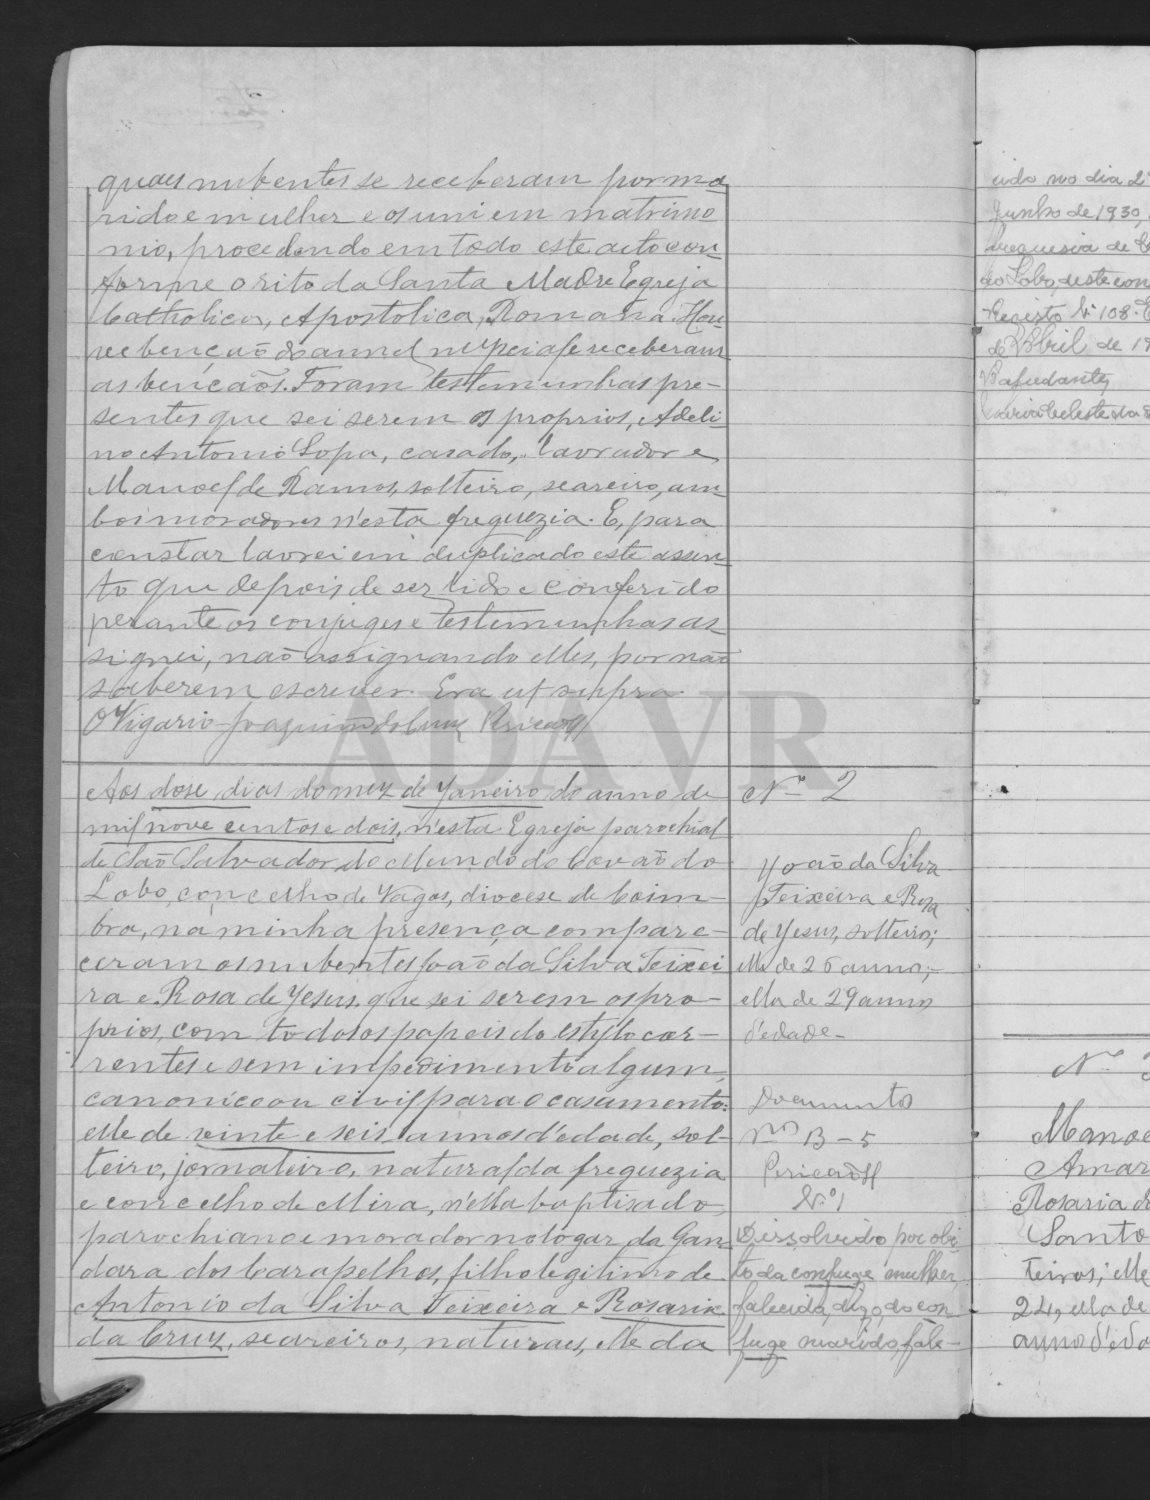 quaes nubentes se receberam por ma-
rido e mulher e os uni em matrimo
nio, procedendo em todo este acto con-
forme o rito da Santa Madre Egreja
Catholica, Apostolica, Romana. Hou-
ve benção do annel nupcial e receberam
as bençãos. Foram testemunhas pre-
sentes que sei serem os proprios, Adeli-
no Antonio Lopa, casado, lavrador e
Manoel de Ramos, solteiro, seareiro, am-
bos moradores n'esta freguezia. E, para
constar lavrei em duplicado este assen-
to que depois de ser lido e conferido
perante os conjuges e testemunhas as-
signei, não assignando elles, por não
saberem escrever. Era ut supra.
O Vigario Joaquim da Cruz Pericão
ADAVR
Aos dose dias do mez de Janeiro do anno de
mil nove centos e dois, n'esta Egreja parochial
de São Salvador do Mundo do Covão do
Lobo, concelho de Vagos, diocese de Coim-
bra, na minha presença compare-
ceram os nubentes João da Silva Teixei
ra e Rosa de Jesus, que sei serem os pro-
prios, com todos os papeis do estylo cor-
rentes e sem impedimento algum,
canonico ou civil para o casamento:
elle de vinte e seis annos d'edade, sol-
teiro, jornaleiro, natural da freguezia
e concelho de Mira, n'ella baptisado,
parochiano e morador no logar da Gan-
dara dos Carapelhos, filho legitimo de
Antonio da Silva Teixeira e Rosaria
da Cruz, seareiros, naturaes, elle da
Nº 2
João da Silva
Teixeira e Rosa
de Jesus, solteiros;
elle de 26 annos,
ella de 29 annos
d'edade -
Documentos
nos B - 5
Pericão
Nº 1
Dissolvido por obi-
to da conjuge mulher,
falecida, digo, do con-
juge marido, fale-
cido no dia 2
Junho de 1930,
freguesia de C
do Lobo, deste con
Registo Nº 108. E
de Abril de 19
O ajudante,
Maria Celeste da
Nº 3
Manoe
Amar
Rosaria d
Santo
teiros; elle
24, ella de
annos d'eda